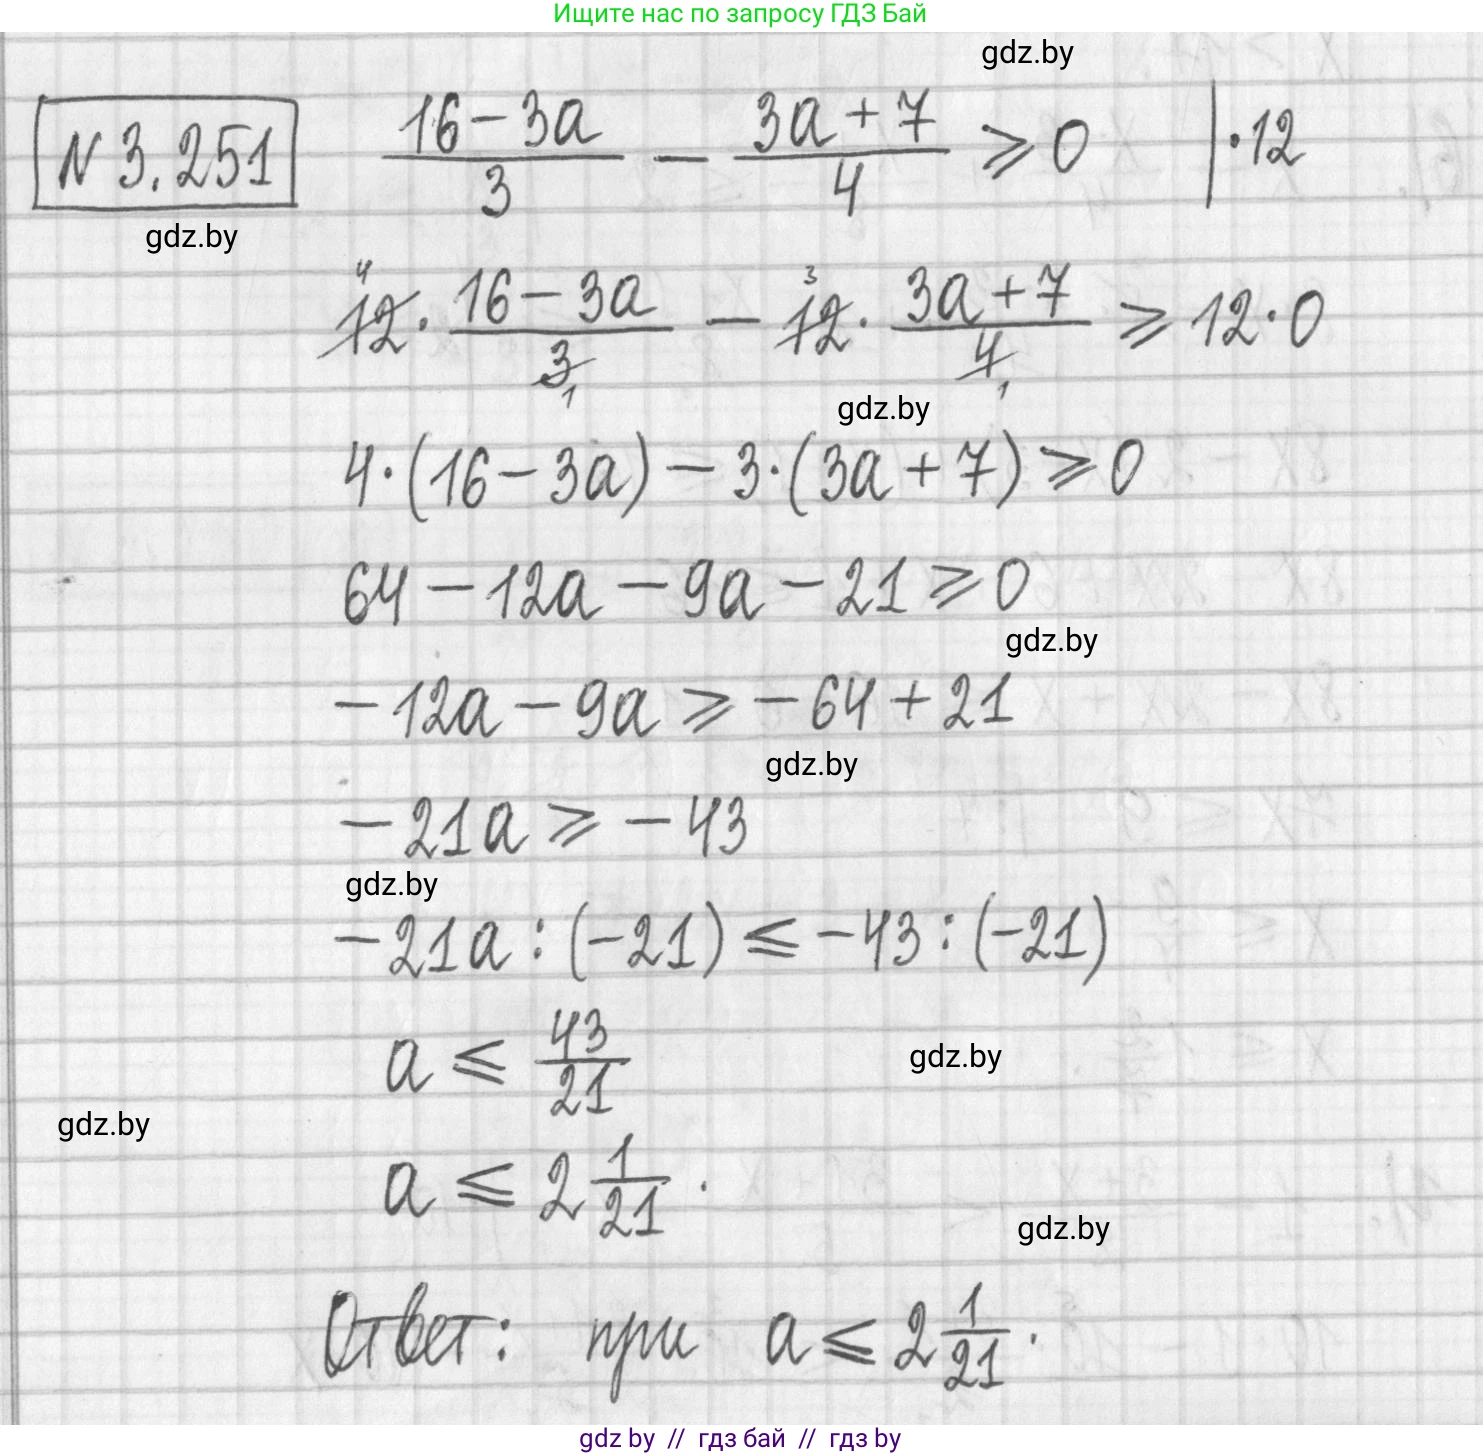 Ищите нас по запросу ГДЗ Бай
gdz.by
N 3.251 (16-3a)/3 - (3a+7)/4 ⩾ 0 | ·12
gdz.by
12⁴ · (16-3a)/3₁ - 12³ · (3a+7)/4₁ ⩾ 12·0
gdz.by
4·(16-3a)-3·(3a+7)⩾0
64-12a-9a-21⩾0
gdz.by
-12a-9a⩾-64+21
gdz.by
-21a⩾-43
gdz.by
-21a:(-21)⩽-43:(-21)
a⩽43/21
gdz.by
gdz.by
a⩽2 1/21.
gdz.by
Ответ: при a⩽2 1/21.
gdz by // гдз бай // гдз by